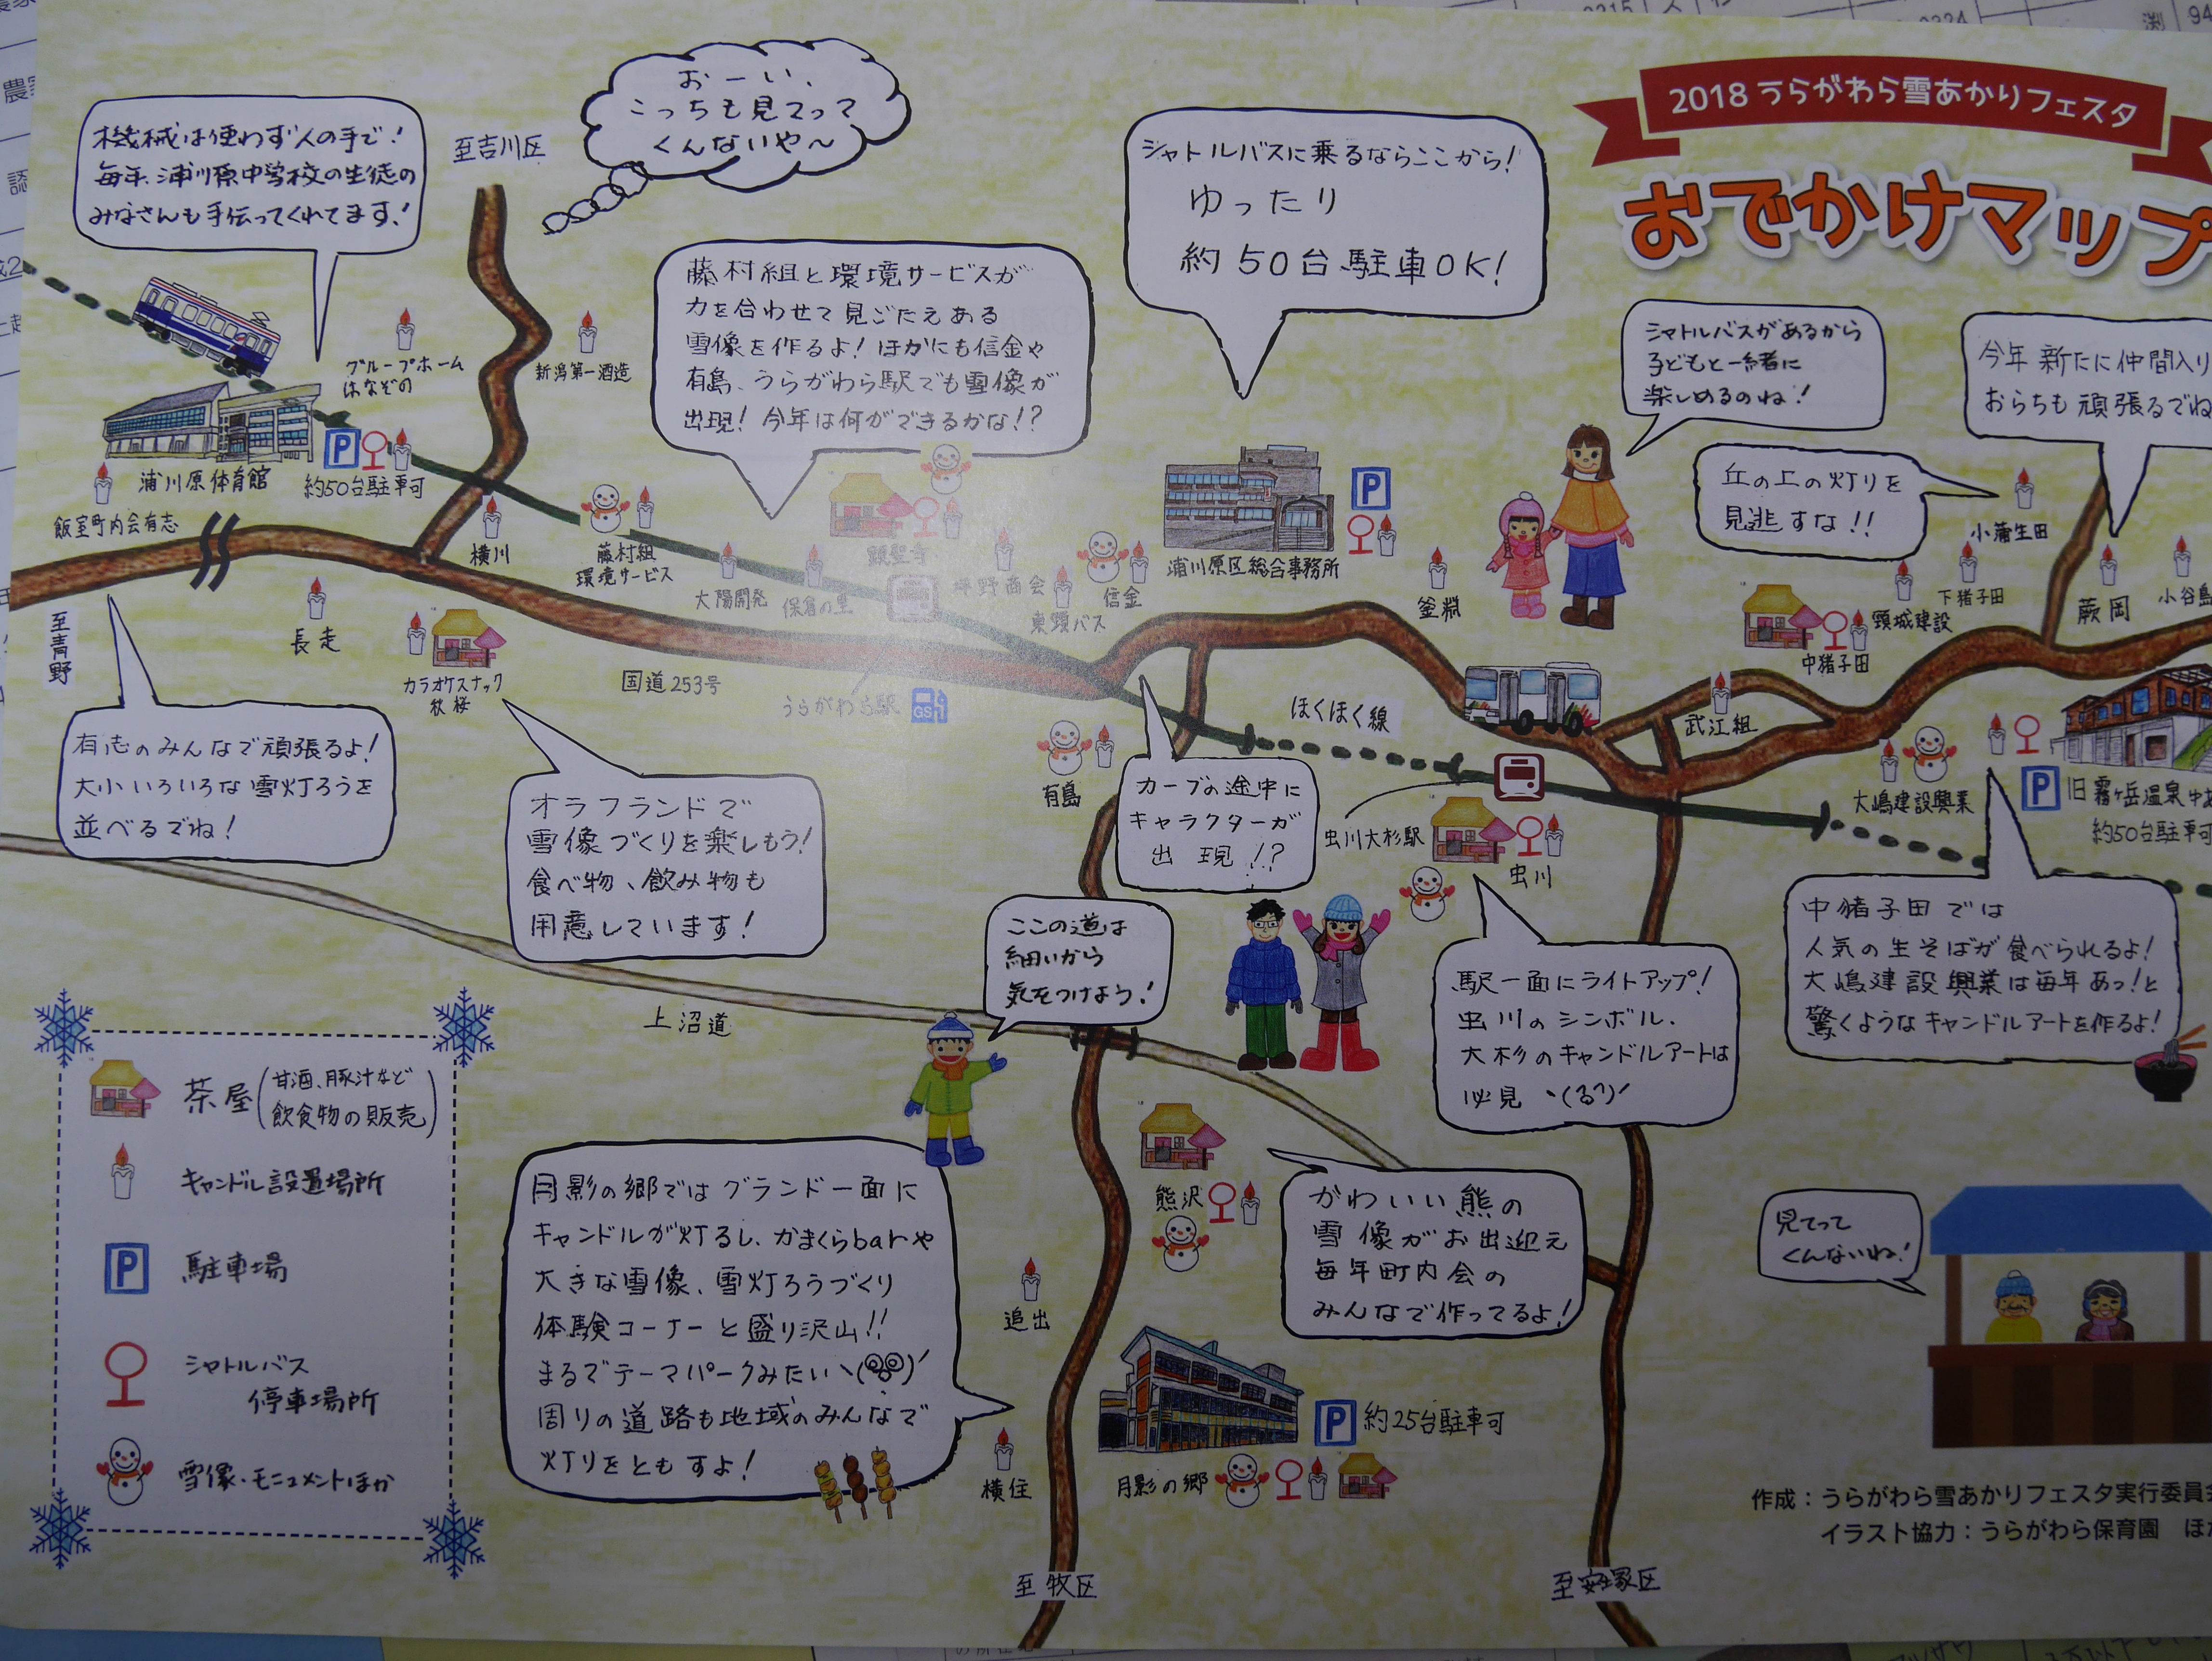 2018 うらがわら雪あかりフェスタ
おでかけマップ
機械は使わず人の手で！
毎年、浦川原中学校の生徒の
みなさんも手伝ってくれてます！
至吉川区
おーい、
こっちも見てって
くんないや～
藤村組と環境サービスが
力を合わせて見ごたえある
雪像を作るよ！ほかにも信金や
有島、うらがわら駅でも雪像が
出現！今年は何ができるかな！？
シャトルバスに乗るならここから！
ゆったり
約50台駐車OK！
シャトルバスがあるから
子どもと一緒に
楽しめるのね！
今年新たに仲間入り
おらちも頑張るでね
丘の上の灯りを
見逃すな！！
グループホーム
はなぞの
新潟第一酒造
浦川原体育館
P
約50台駐車可
飯室町内会有志
横川
藤村組
環境サービス
大陽開発
保倉の里
顕聖寺
坪野商会
東頸バス
信金
浦川原区総合事務所
P
釜淵
小蒲生田
下猪子田
頸城建設
中猪子田
蕨岡
小谷島
至青野
長走
カラオケスナック
秋桜
国道253号
うらがわら駅
GS
ほくほく線
武江組
有島
虫川大杉駅
虫川
大嶋建設興業
P
旧霧ヶ岳温泉ゆあ
約50台駐車可
有志のみんなで頑張るよ！
大小いろいろな雪灯ろうを
並べるでね！
オラフランドで
雪像づくりを楽しもう！
食べ物、飲み物も
用意しています！
カーブの途中に
キャラクターが
出現！？
ここの道は
細いから
気をつけよう！
上沼道
駅一面にライトアップ！
虫川のシンボル、
大杉のキャンドルアートは
必見ヽ(る?)ノ
中猪子田では
人気の生そばが食べられるよ！
大嶋建設興業は毎年あっ！と
驚くようなキャンドルアートを作るよ！
茶屋(甘酒、豚汁など
飲食物の販売)
キャンドル設置場所
P
駐車場
シャトルバス
停車場所
雪像・モニュメントほか
月影の郷ではグランド一面に
キャンドルが灯るし、かまくらbarや
大きな雪像、雪灯ろうづくり
体験コーナーと盛り沢山！！
まるでテーマパークみたい
周りの道路も地域のみんなで
灯りをともすよ！
熊沢
かわいい熊の
雪像がお出迎え
毎年町内会の
みんなで作ってるよ！
見てって
くんないね！
追出
横住
月影の郷
P
約25台駐車可
作成：うらがわら雪あかりフェスタ実行委員会
イラスト協力：うらがわら保育園 ほか
至牧区
至安塚区